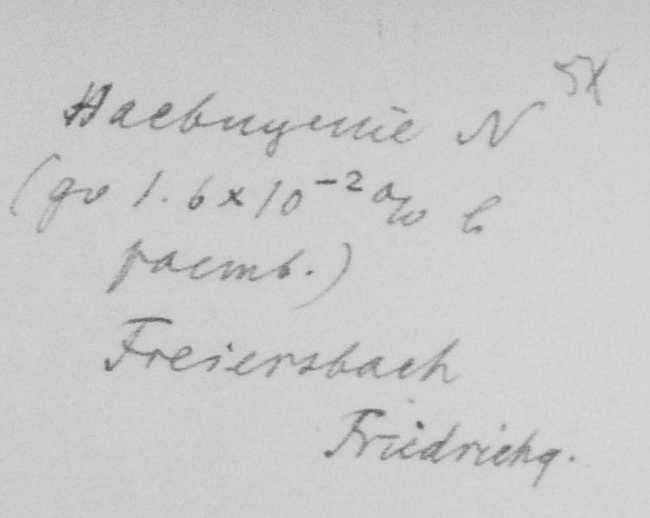 Насыщение N 5X
(до 1.6×10⁻² % в
раств.)
Freiersbach
Friedrichq.